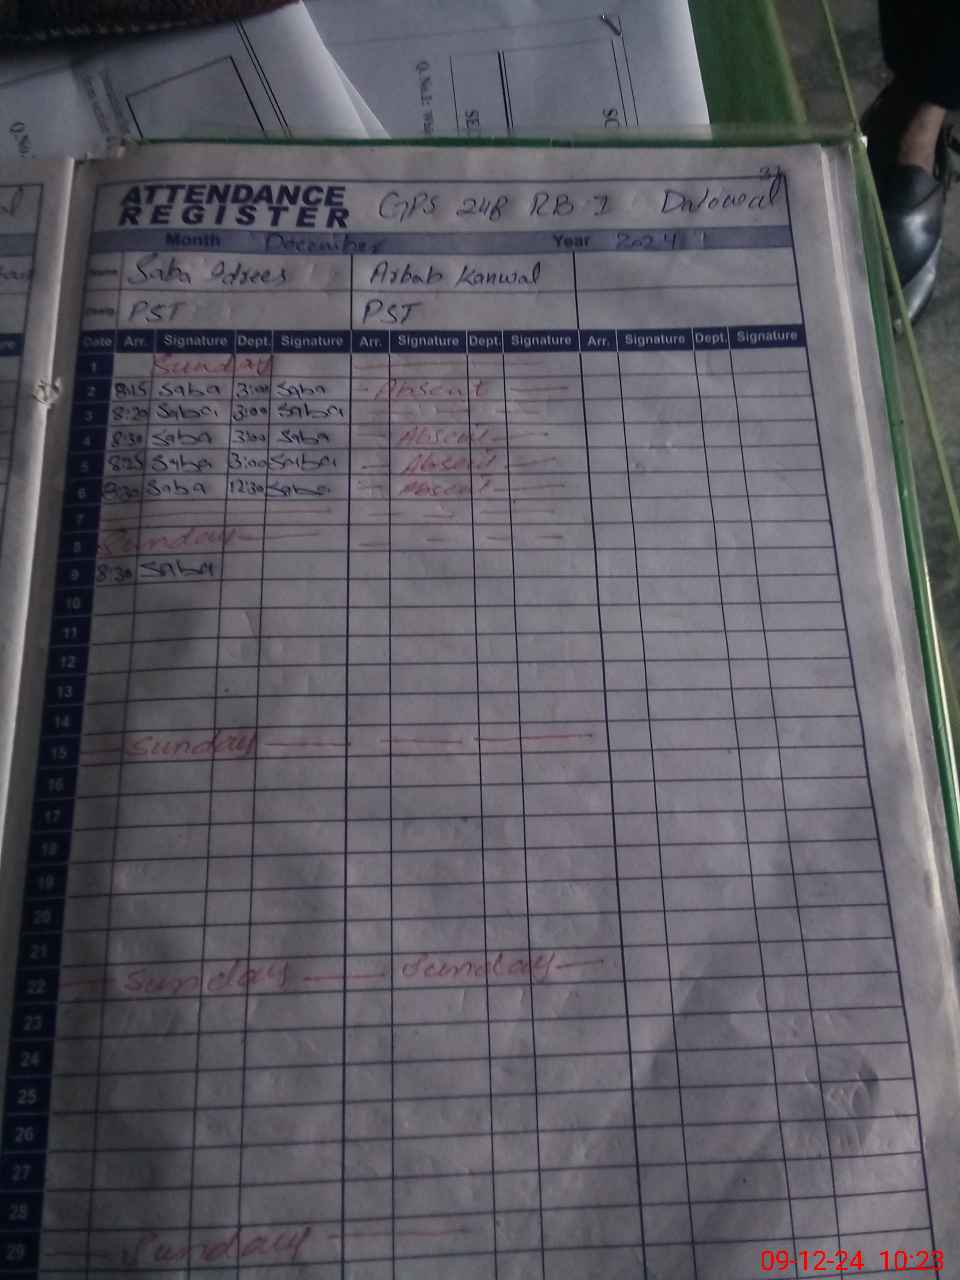 Q.No.
Q.No.1:
SE
SC
ATTENDANCE
REGISTER
GPS 248 RB I
Month December Year 2024
Name Saba Idrees Arbab Kanwal
PST PST
Date Arr. Signature Dept. Signature Arr. Signature Dept. Signature Arr. Signature Dept. Signature
1 Sunday
2 8:15 Saba 3:00 Saba Absent
3 8:20 Saba 3:00 Saba
4 8:30 Saba 3:00 Saba Absent
5 8:25 Saba 3:00 Saba Absent
6 8:30 Saba 12:30 Saba Absent
7
8 Sunday
9 8:30 Saba
10
11
12
13
14
15 Sunday
16
17
18
19
20
21
22 Sunday Sunday
23
24
25
26
27
28
29 Sunday
09-12-24 10:23